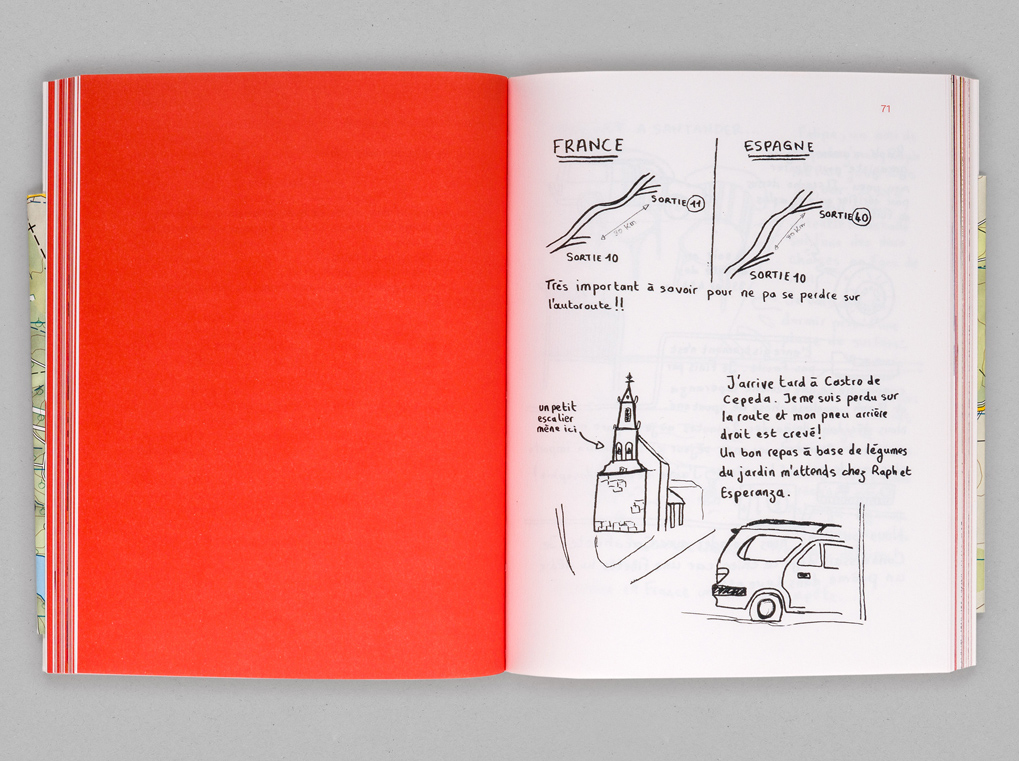 71
FRANCE
SORTIE 11
30 km
SORTIE 10
ESPAGNE
SORTIE 40
30 km
SORTIE 10
Très important à savoir pour ne pa se perdre sur
l'autoroute !!
un petit
escalier
mène ici
J'arrive tard à Castro de
Cepeda. Je me suis perdu sur
la route et mon pneu arrière
droit est crevé !
Un bon repas à base de légumes
du jardin m'attends chez Raph et
Esperanza.